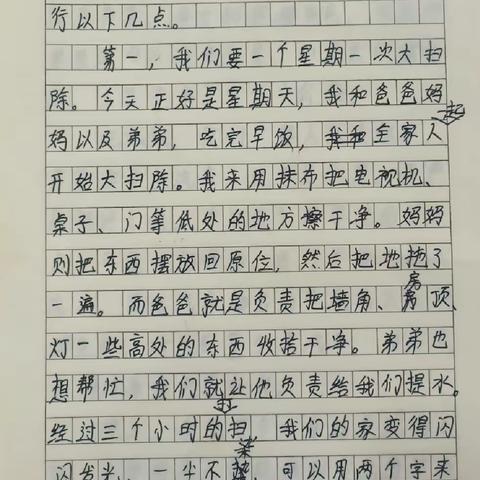 行以下几点。
第一，我们要一个星期一次大扫
除。今天正好是星期天，我和爸爸妈
妈以及弟弟，吃完早饭，我和全家人起
开始大扫除。我来用抹布把电视机、
桌子、门等低处的地方擦干净。妈妈
则把东西摆放回原位，然后把地拖了
一遍。而爸爸就是负责把墙角、房顶、
灯一些高处的东西收拾干净。弟弟也
想帮忙，我们就让他负责给我们提水。
经过三个小时的打扫，我们的家变得闪
闪发光、一尘不染，可以用两个字来